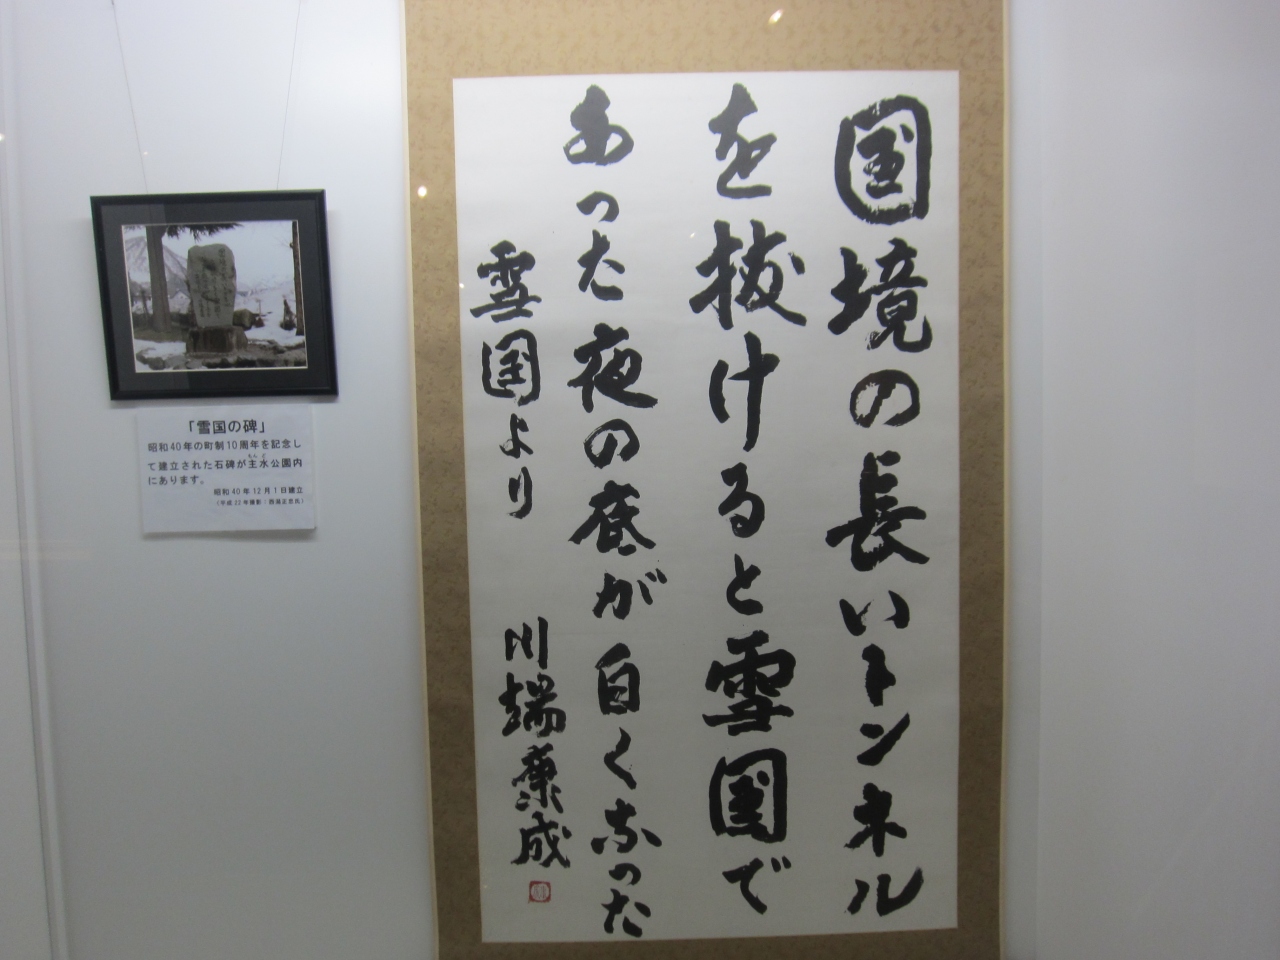 国境の長いトンネル
を抜けると雪国で
あった夜の底が白くなった
雪国より 川端康成
「雪国の碑」
昭和40年の町制10周年を記念し
て建立された石碑が主水公園内
にあります。
昭和40年12月1日建立